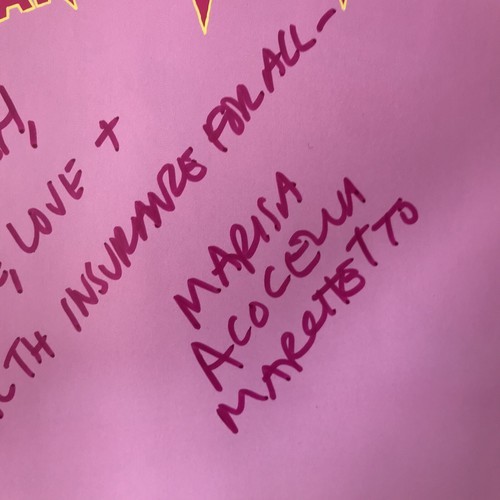 H,
E, LOVE +
LTH INSURANCE FOR ALL-
MARISA
ACOCELLA
MARCHETTO